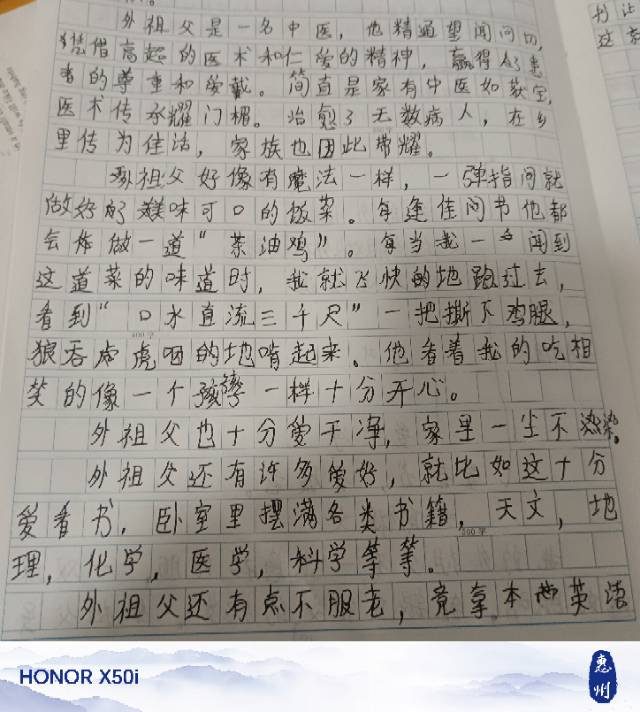 外祖父是一名中医，他精通望闻问切，
凭借高超的医术和仁爱的精神，赢得众患
者的尊重和爱戴。简直是家有中医如获宝，
医术传承耀门楣。治愈了无数病人，在乡
里传为佳话，家族也因此荣耀。
外祖父好像有魔法一样，一弹指间就
做好了美味可口的饭菜。每逢佳问书他都
会做一道“茶油鸡”。每当我一闻到
这道菜的味道时，我就飞快的地跑过去，
看到“口水直流三千尺”一把撕下鸡腿，
狼吞虎咽的地啃起来。他看着我的吃相
笑的像一个孩子一样十分开心。
外祖父也十分爱干净，家里一尘不染。
外祖父还有许多爱好，就比如这十分
爱看书，卧室里摆满各类书籍，天文，地
理，化学，医学，科学等等。
外祖父还有点不服老，竟拿本英语
书让
这
HONOR X50i
惠州